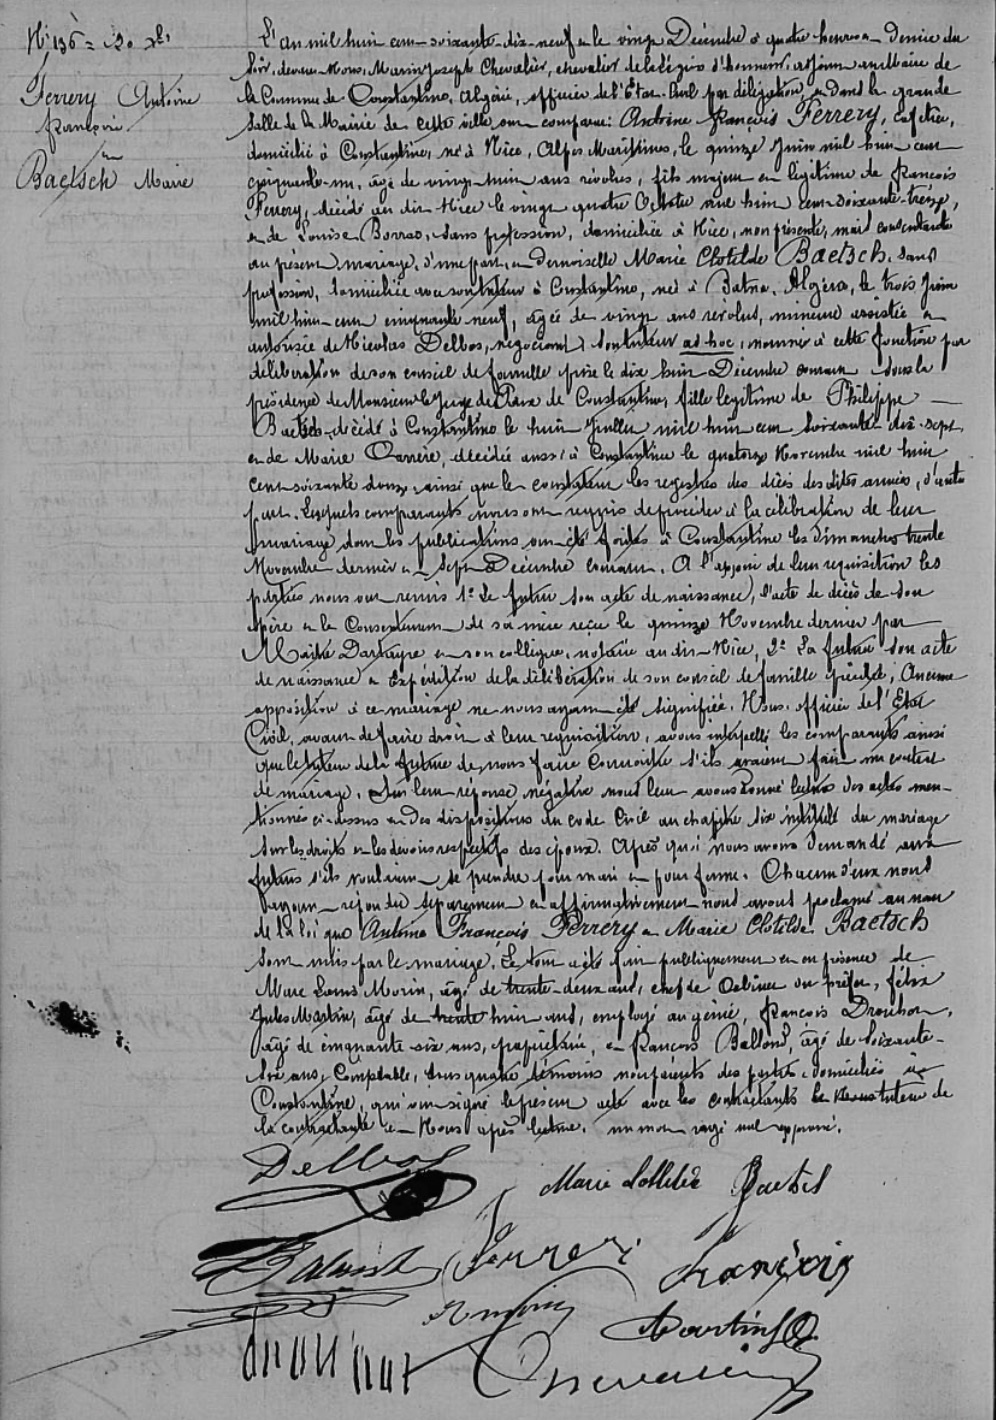 N° 136 = 20 Xbre
Ferrery Antoine
François
en
Baetsch Marie
L'an mil huit cent soixante-dix-neuf et le vingt Décembre à quatre heures et demie du
soir, devant Nous, Marin Joseph Chevalier, chevalier de la Légion d'honneur, adjoint au Maire de
la Commune de Constantine, Algérie, officier de l'Etat-Civil par délégation, et dans la grande
Salle de la Mairie de cette ville ont comparu : Antoine François Ferrery, cafetier,
domicilié à Constantine, né à Nice, Alpes Maritimes, le quinze Juin mil huit cent
cinquante-un, âgé de vingt-huit ans révolus, fils majeur et légitime de François
Ferrery, décédé au dit Nice le vingt quatre Octobre mil huit cent soixante-treize,
et de Louise Borras, sans profession, domiciliée à Nice, non présente, mais consentante
au présent mariage, d'une part, et demoiselle Marie Clotilde Baetsch, sans
profession, domiciliée avec son tuteur à Constantine, née à Batna, Algérie, le trois Juin
mil huit-cent cinquante neuf, âgée de vingt ans révolus, mineure assistée et
autorisée de Nicolas Delbos, négociant, son tuteur ad hoc, nommé à cette fonction par
délibération de son conseil de famille prise le dix huit Décembre courant sous la
présidence de Monsieur le Juge de Paix de Constantine, fille légitime de Philippe
Baetsch, décédé à Constantine le huit Juillet mil huit cent soixante-dix-sept,
et de Marie Carrère, décédée aussi à Constantine le quatorze Novembre mil huit
cent soixante douze, ainsi que le constatent les registres des décès des dites années, d'autre
part. Lesquels comparants nous ont requis de procéder à la célébration de leur
mariage dont les publications ont été faites à Constantine les dimanches trente
Novembre dernier et sept Décembre courant. A l'appui de leur réquisition les
parties nous ont remis 1° Le futur son acte de naissance, l'acte de décès de son
père et le Consentement de sa mère reçu le quinze Novembre dernier par
Maître Dartayre et son collègue, notaire au dit Nice, 2° La future son acte
de naissance et Expédition de la délibération de son conseil de famille précité ; Aucune
opposition à ce mariage ne nous ayant été signifiée. Nous, officier de l'Etat
Civil, avant de faire droit à leur réquisition, avons interpellé les comparants ainsi
que le tuteur de la future de nous faire connaître s'ils avaient fait un contrat
de mariage. Sur leur réponse négative nous leur avons donné lecture des actes men-
tionnés ci-dessus et des dispositions du code Civil au chapitre six intitulé du mariage
sur les droits et les devoirs respectifs des époux. Après quoi nous avons demandé aux
futurs s'ils voulaient se prendre pour mari et pour femme. Chacun d'eux nous
ayant répondu séparément et affirmativement nous avons proclamé au nom
de la loi que Antoine François Ferrery et Marie Clotilde Baetsch
sont unis par le mariage. Le tout a été fait publiquement et en présence de
Marc Louis Morin, âgé de trente-deux ans, chef de Cabinet du préfet, Félix
Jules Martin, âgé de trente huit ans, employé au génie, François Drouhon,
âgé de cinquante six ans, propriétaire, et François Balland, âgé de soixante-
six ans, Comptable, tous quatre témoins non parents des parties, domiciliés à
Constantine, qui ont signé le présent acte avec les contractants le tuteur de
la contractante et Nous après lecture. un mot rayé nul approuvé.
Delbos
Marie Clotilde Baetsch
Ferrery François
Martin
Chevalier